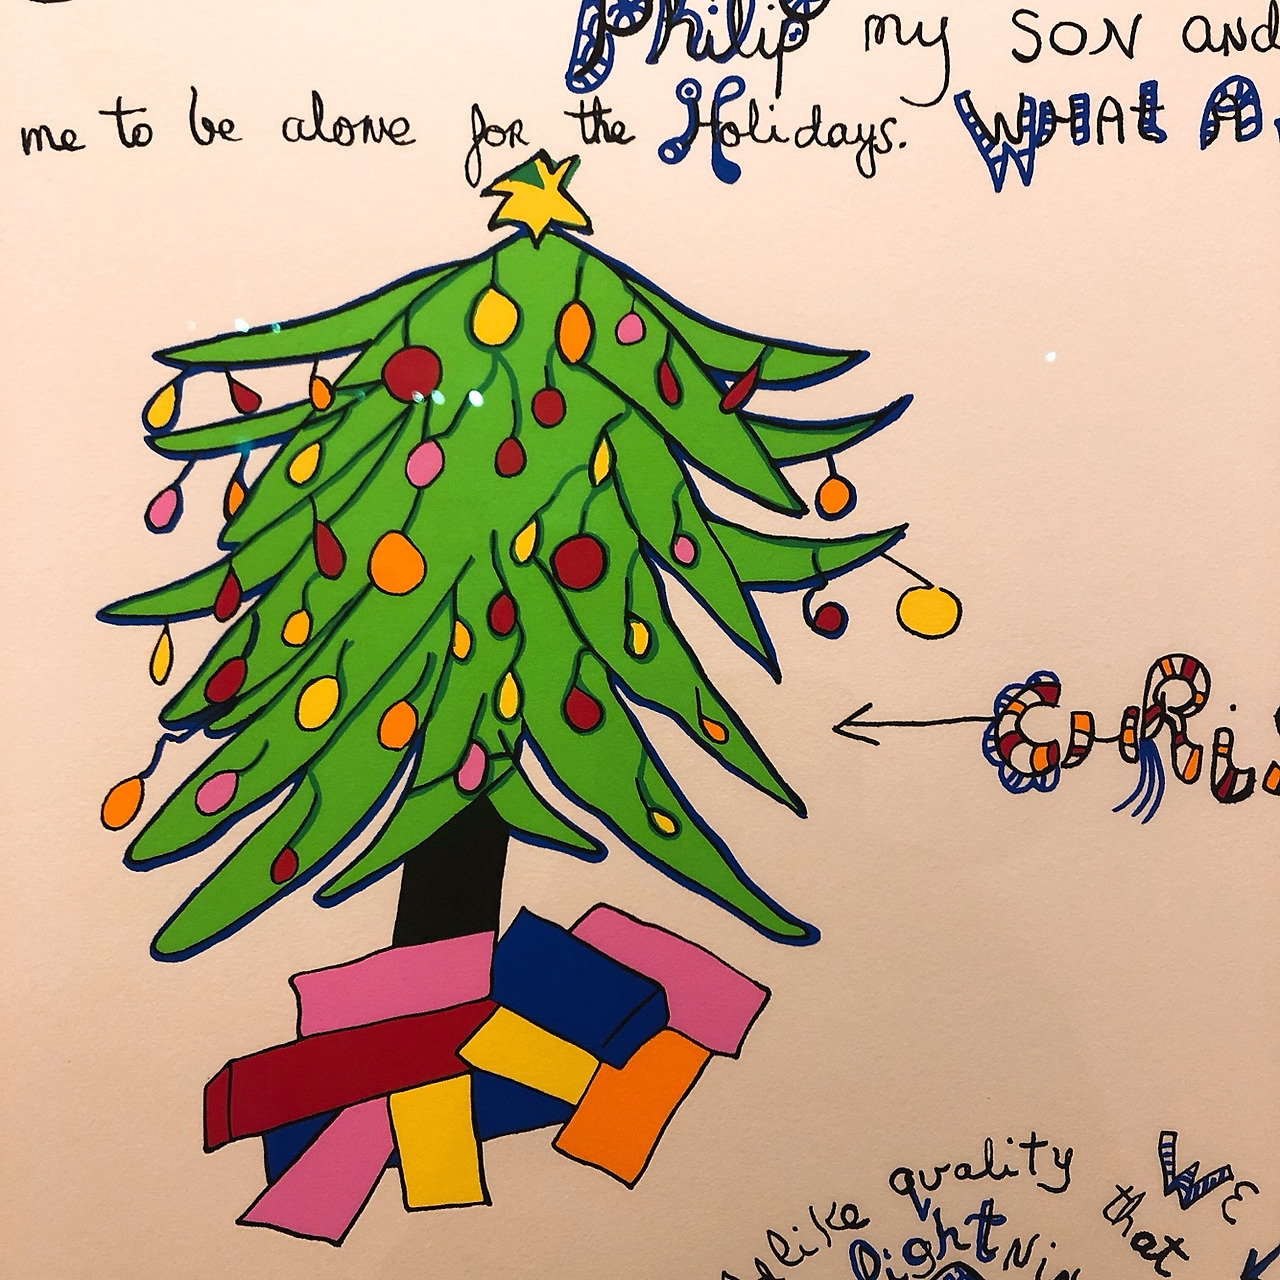 Philip my SON and
me to be alone for the Holidays. WHAT A
CHRIS
quality
like
lightnin
that
WE